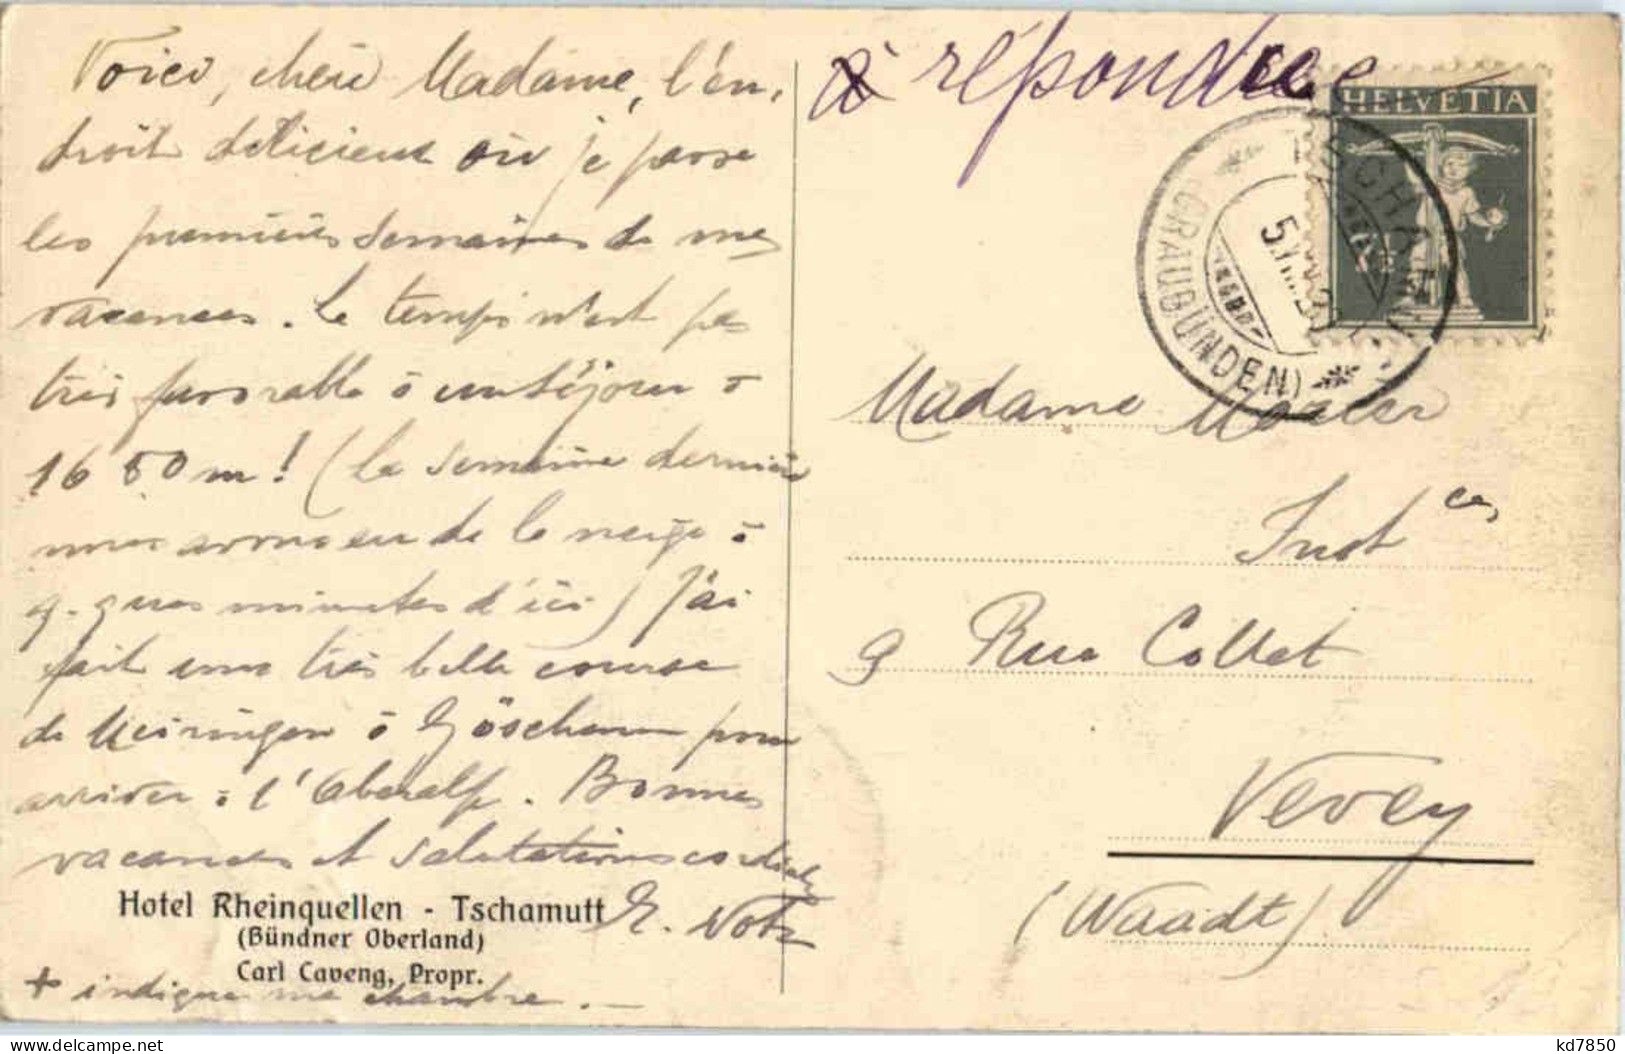 Voici, chère Madame, l'en,
droit délicieux où je passe
les premières semaines de mes
vacances. Le temps n'est pas
très favorable à un séjour à
1650 m! (La semaine dernière
nous avons eu de la neige à
q. ques minutes d'ici) J'ai
fait une très belle course
de Meiringen à Göschenen pour
arriver à l'Oberalp. Bonnes
vacances et salutations cordiales
E. Notz
Hotel Rheinquellen - Tschamutt
(Bündner Oberland)
Carl Caveng, Propr.
+ indique ma chambre. —
à répondre
HELVETIA
TSCHAMUTT
(GRAUBÜNDEN)
Madame
Inst ces
9 Rue Collet
Vevey
(Waadt)
kd7850